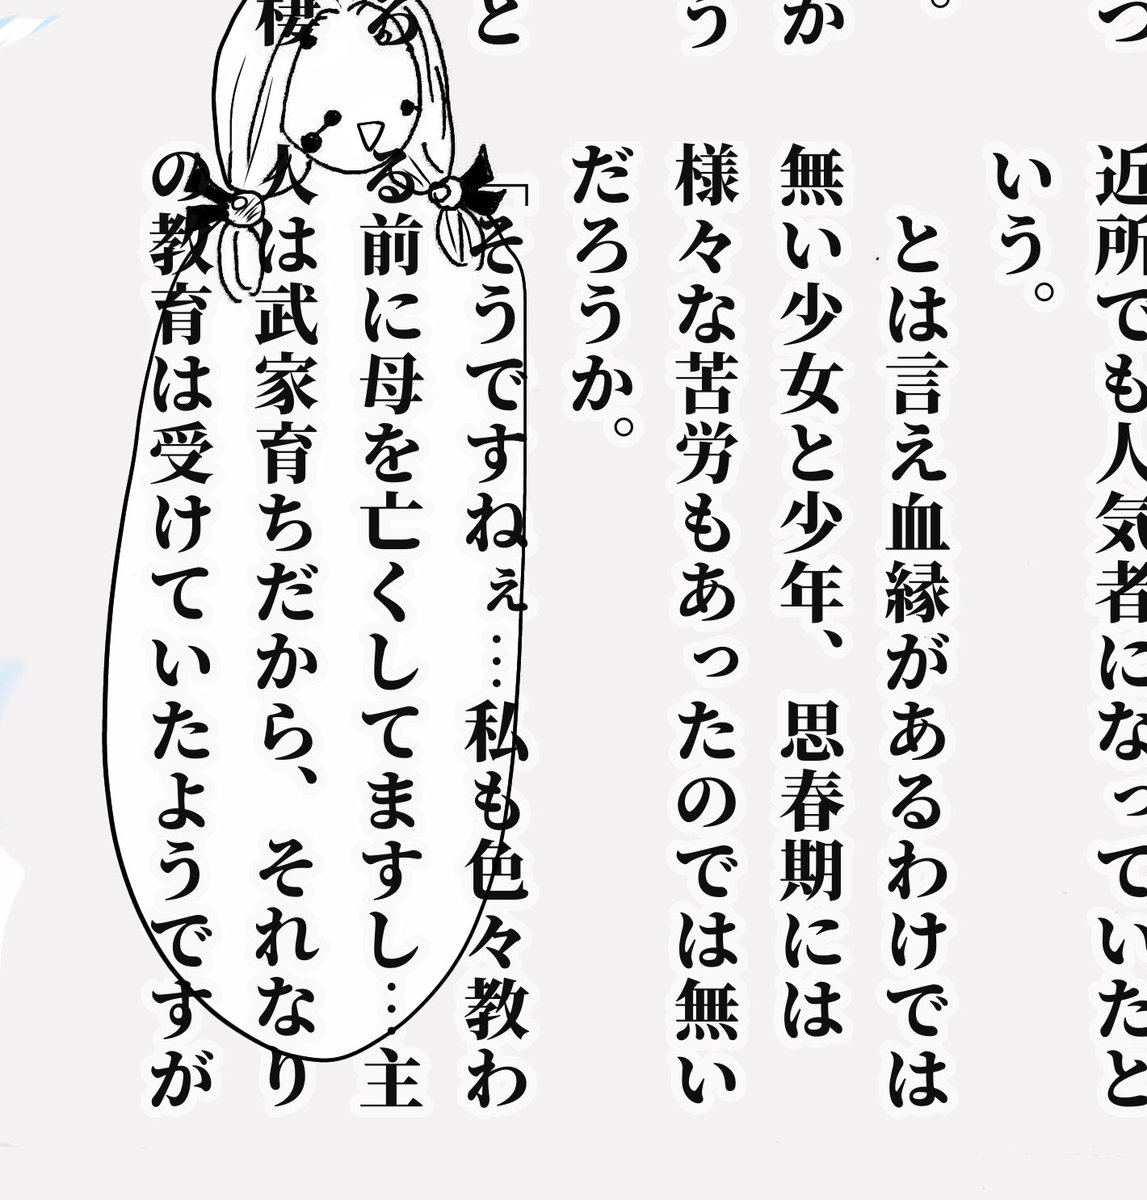 つ
。
か
う
と
る
棲
近所でも人気者になっていたと
いう。
とは言え血縁があるわけでは
無い少女と少年、思春期には
様々な苦労もあったのでは無い
だろうか。
「そうですねぇ…私も色々教わ
る前に母を亡くしてますし…主
人は武家育ちだから、それなり
の教育は受けていたようですが